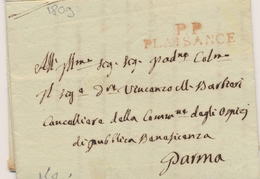 1809
P.P.
PLAISANCE
All' Illmo Sig. Sig. Padne Colmo
Il Sigr Dre Vincenzo M. Barbieri
Cancelliere della Commne degli Ospizj
di pubblica Beneficenza
Parma